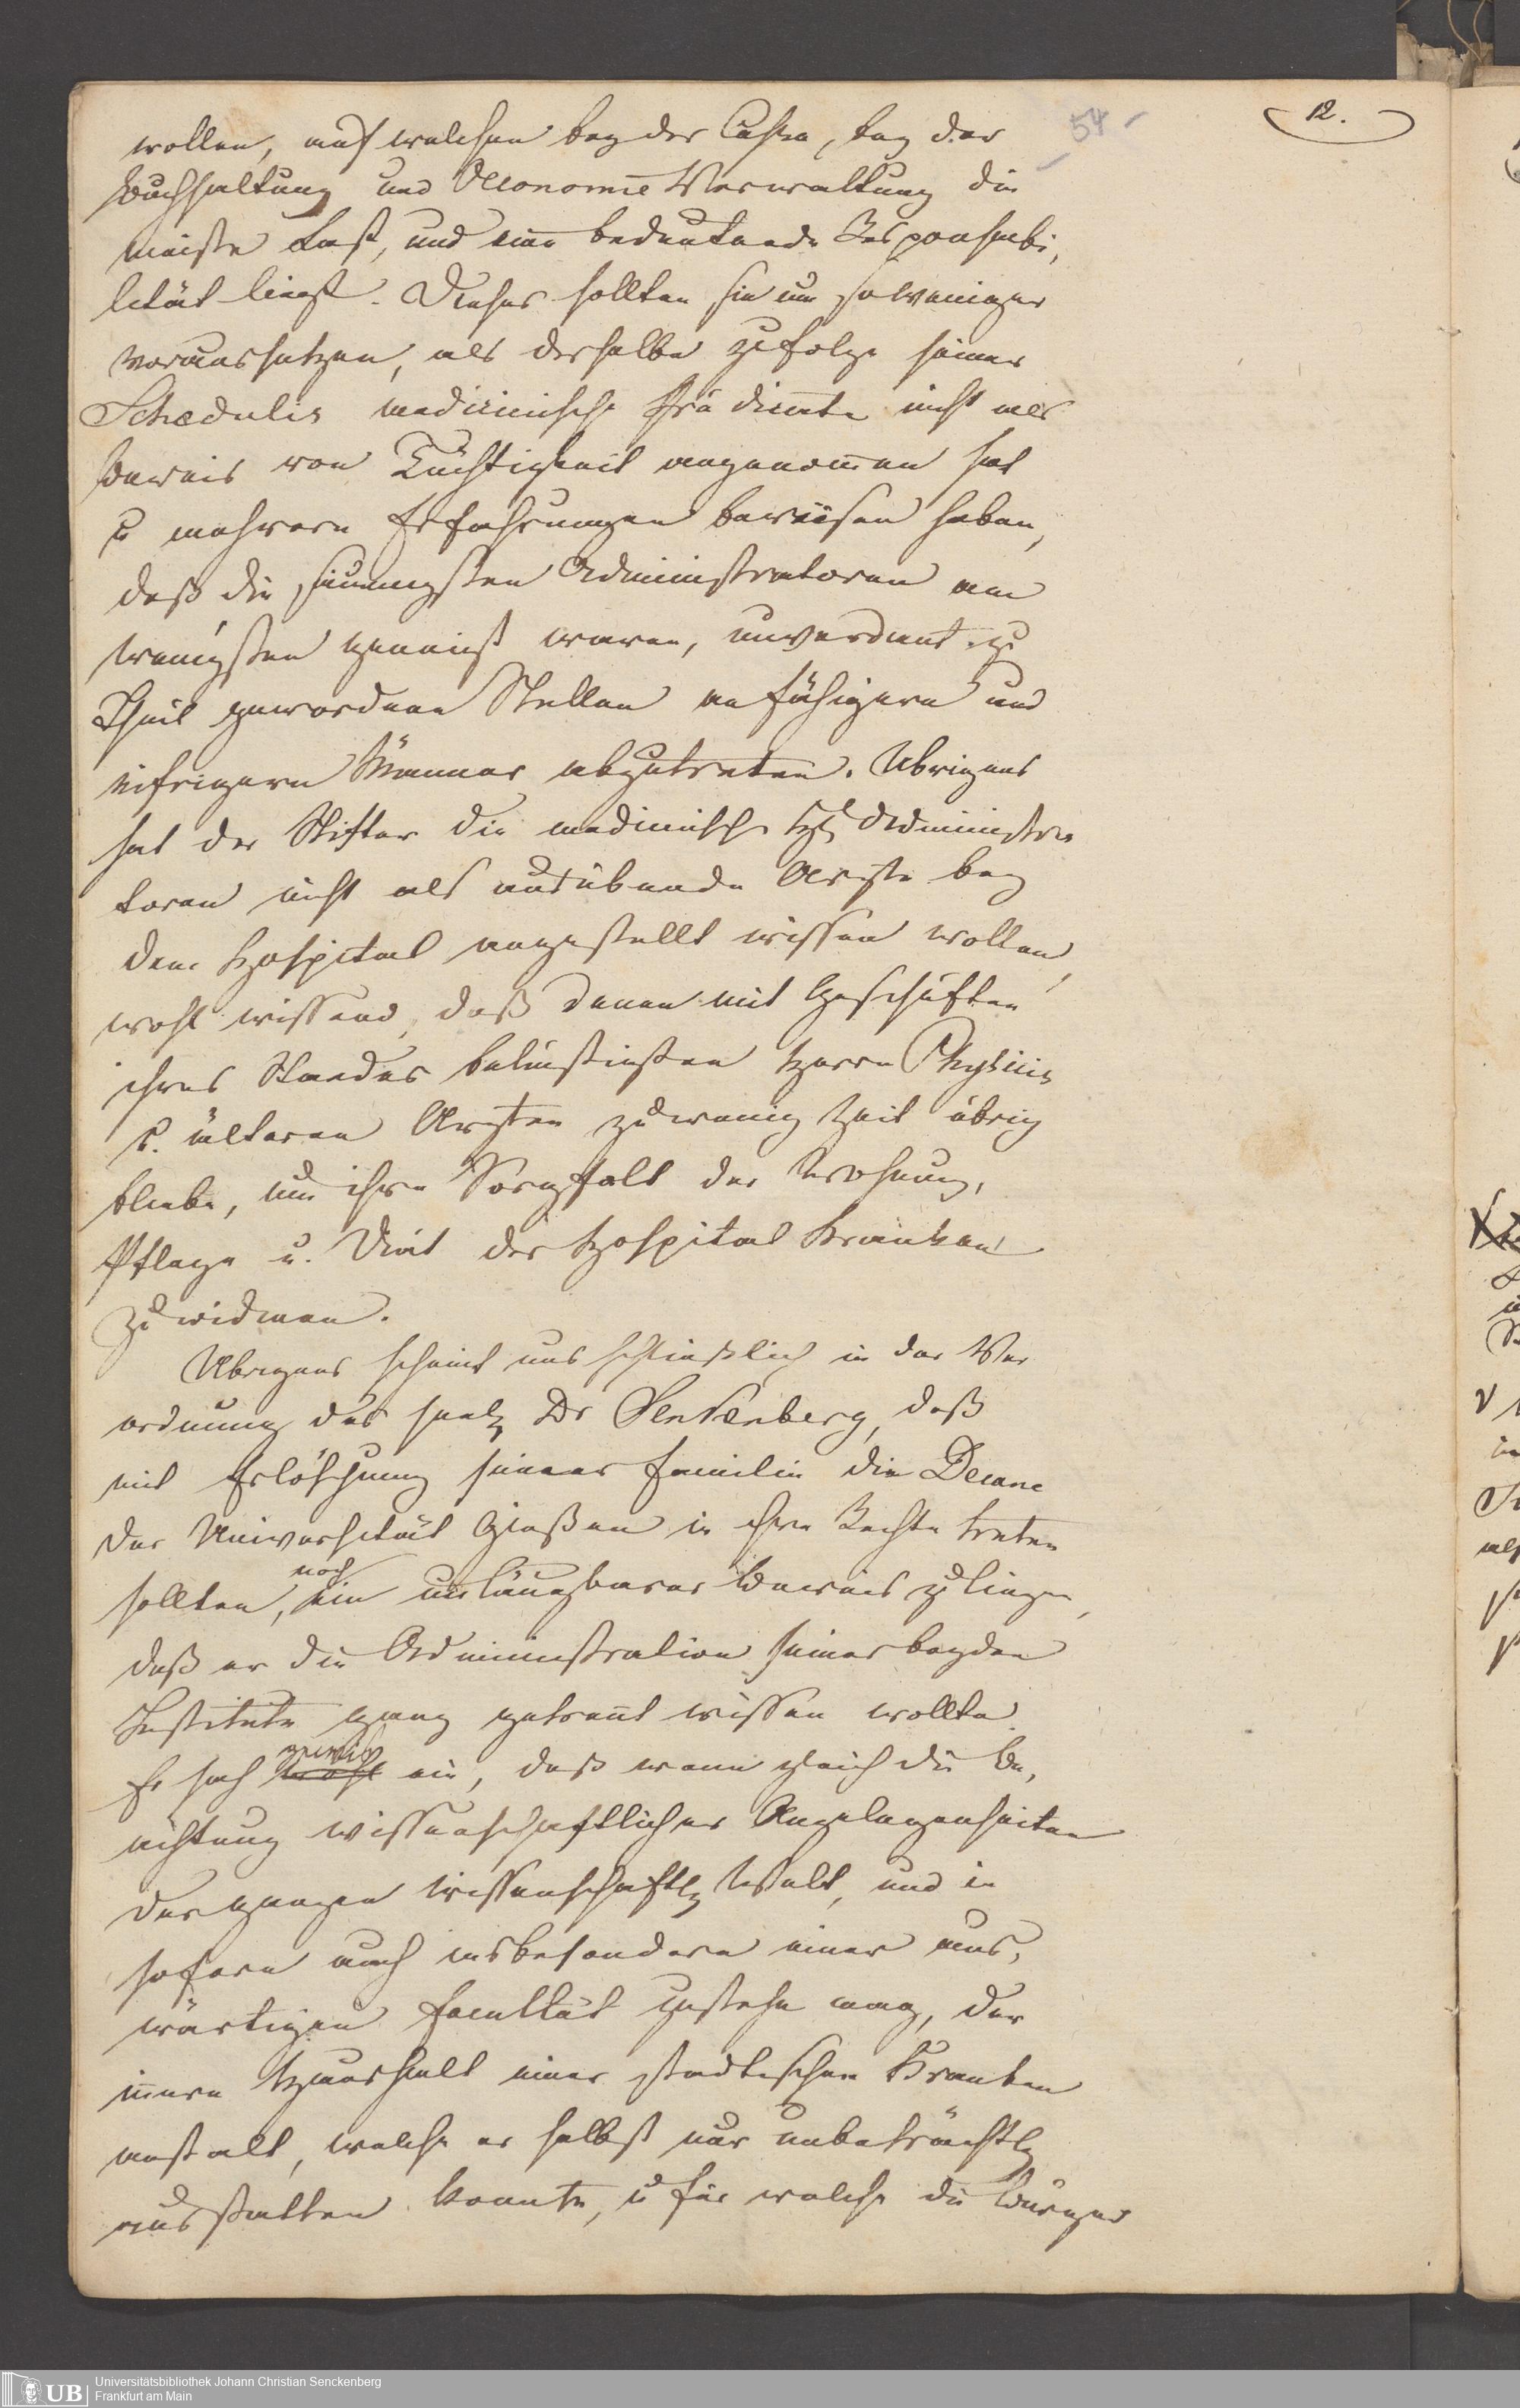 54
12.
wollen, auf welchen bey der Casse, bey der
Buchhaltung und Oeconomie Verwaltung die
meiste Last, und eine bedeutende Responsabi,
lität liegt. Dieses sollten sie um so weniger
voraussetzen, als derselbe zufolge seiner
Schedulis medicinische Prädicate nicht als
Beweis von Tüchtigkeit angenommen hat
u mehrere Erfahrungen bewiesen haben,
daß die sinnigsten Administratoren am
wenigsten geneigt waren, unverdient zu
Theil gewordene Stellen an fähigere und
eifrigere Männer abzutreten. Übrigens
hat der Stifter die medicinische HE Administra
toren nicht als ausübende Aerzte bey
dem Hospital angestellt wissen wollen,
wohl wissend, daß denen mit Geschäften
ihres Standes belästigten Herrn Physicis
u. älteren Aerzten zu wenig Zeit übrig
bliebe, um ihre Sorgfalt der Wohnung,
Pflege u. Diät der Hospital Kranken
zu widmen.
Übrigens scheint uns schließlich in der Ver
ordnung des seelg Dr Senkenberg, daß
mit Erlöschung seiner Familie die Decane
der Universität Gießen in ihre Rechte treten
sollten, noch ein unläugbarer Beweis zu liegen,
daß er die Administration seiner beyden
Institute ganz getrennt wissen wollte.
Er sah gewiß wohl ein, daß wenn gleich die Be,
richtung wissenschaftlicher Angelegenheiten
der ganzen wissenschaftlg Welt, und in
sofern auch insbesondere einer aus,
wärtigen Facultät zustehn mag, der
innere Haushalt einer städtischen Kranken
anstalt, welche er selbst nur unbeträchtlg
ausstatten konnte, u für welche die Bürger
Universitätsbibliothek Johann Christian Senckenberg
Frankfurt am Main
UB